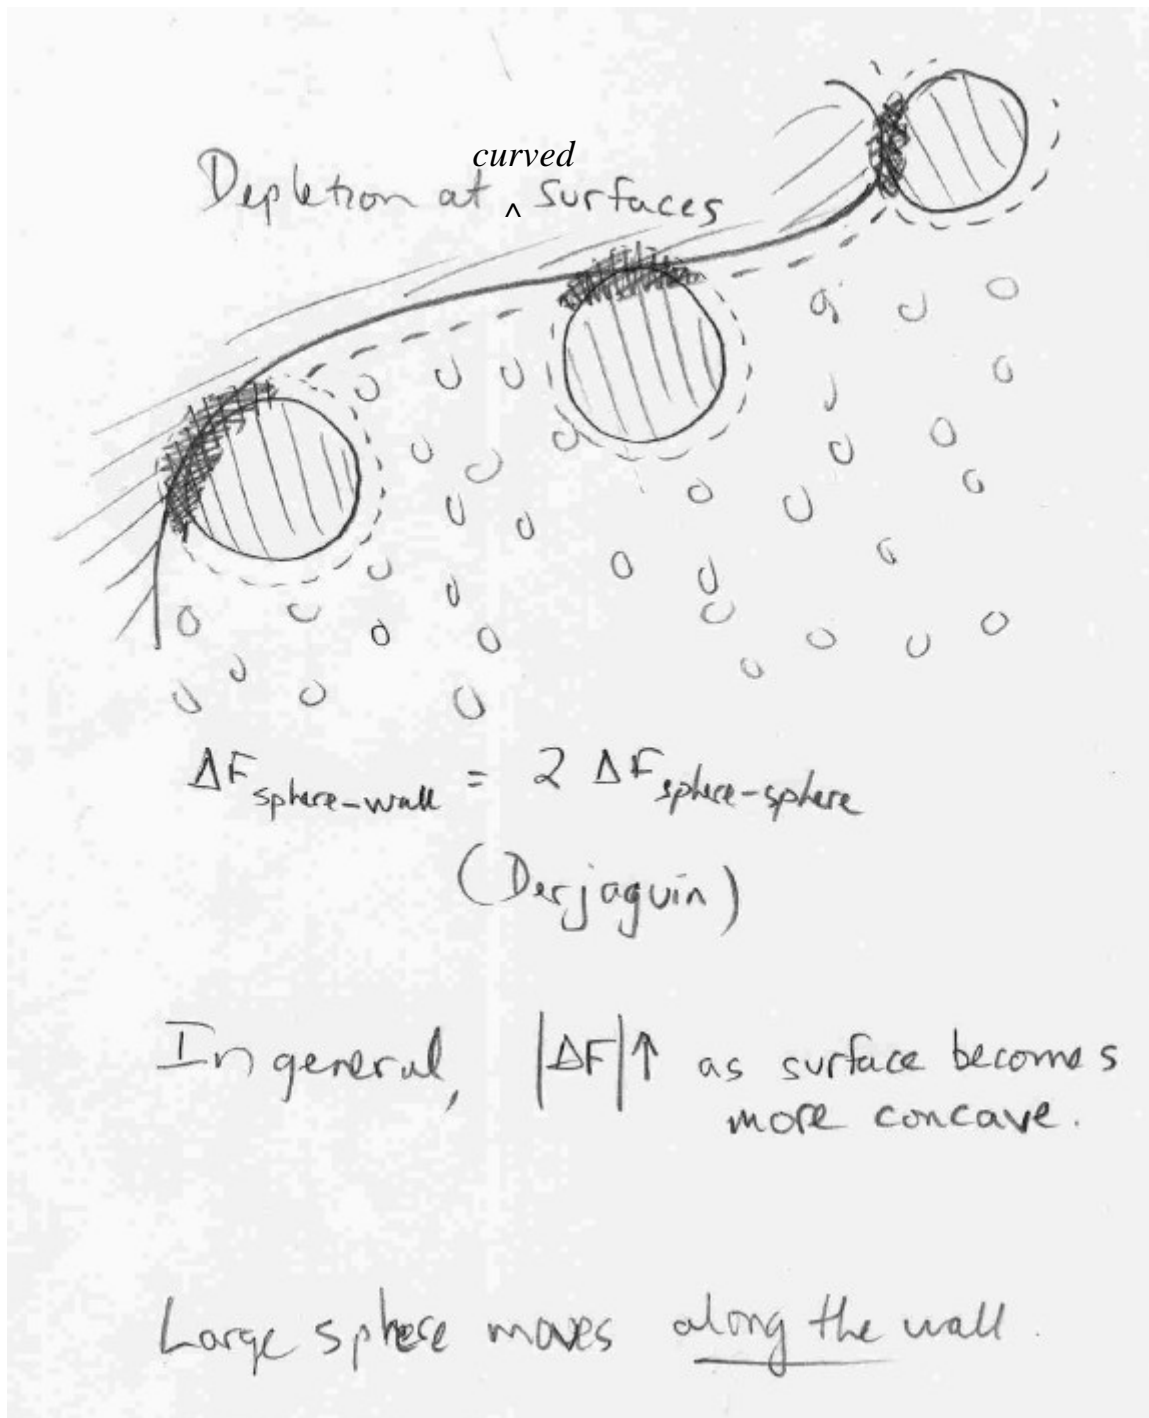 curved
Depletion at ^ surfaces
ΔF sphere-wall = 2 ΔF sphere-sphere
(Derjaguin)
In general, |ΔF|↑ as surface becomes
more concave.
Large sphere moves along the wall.